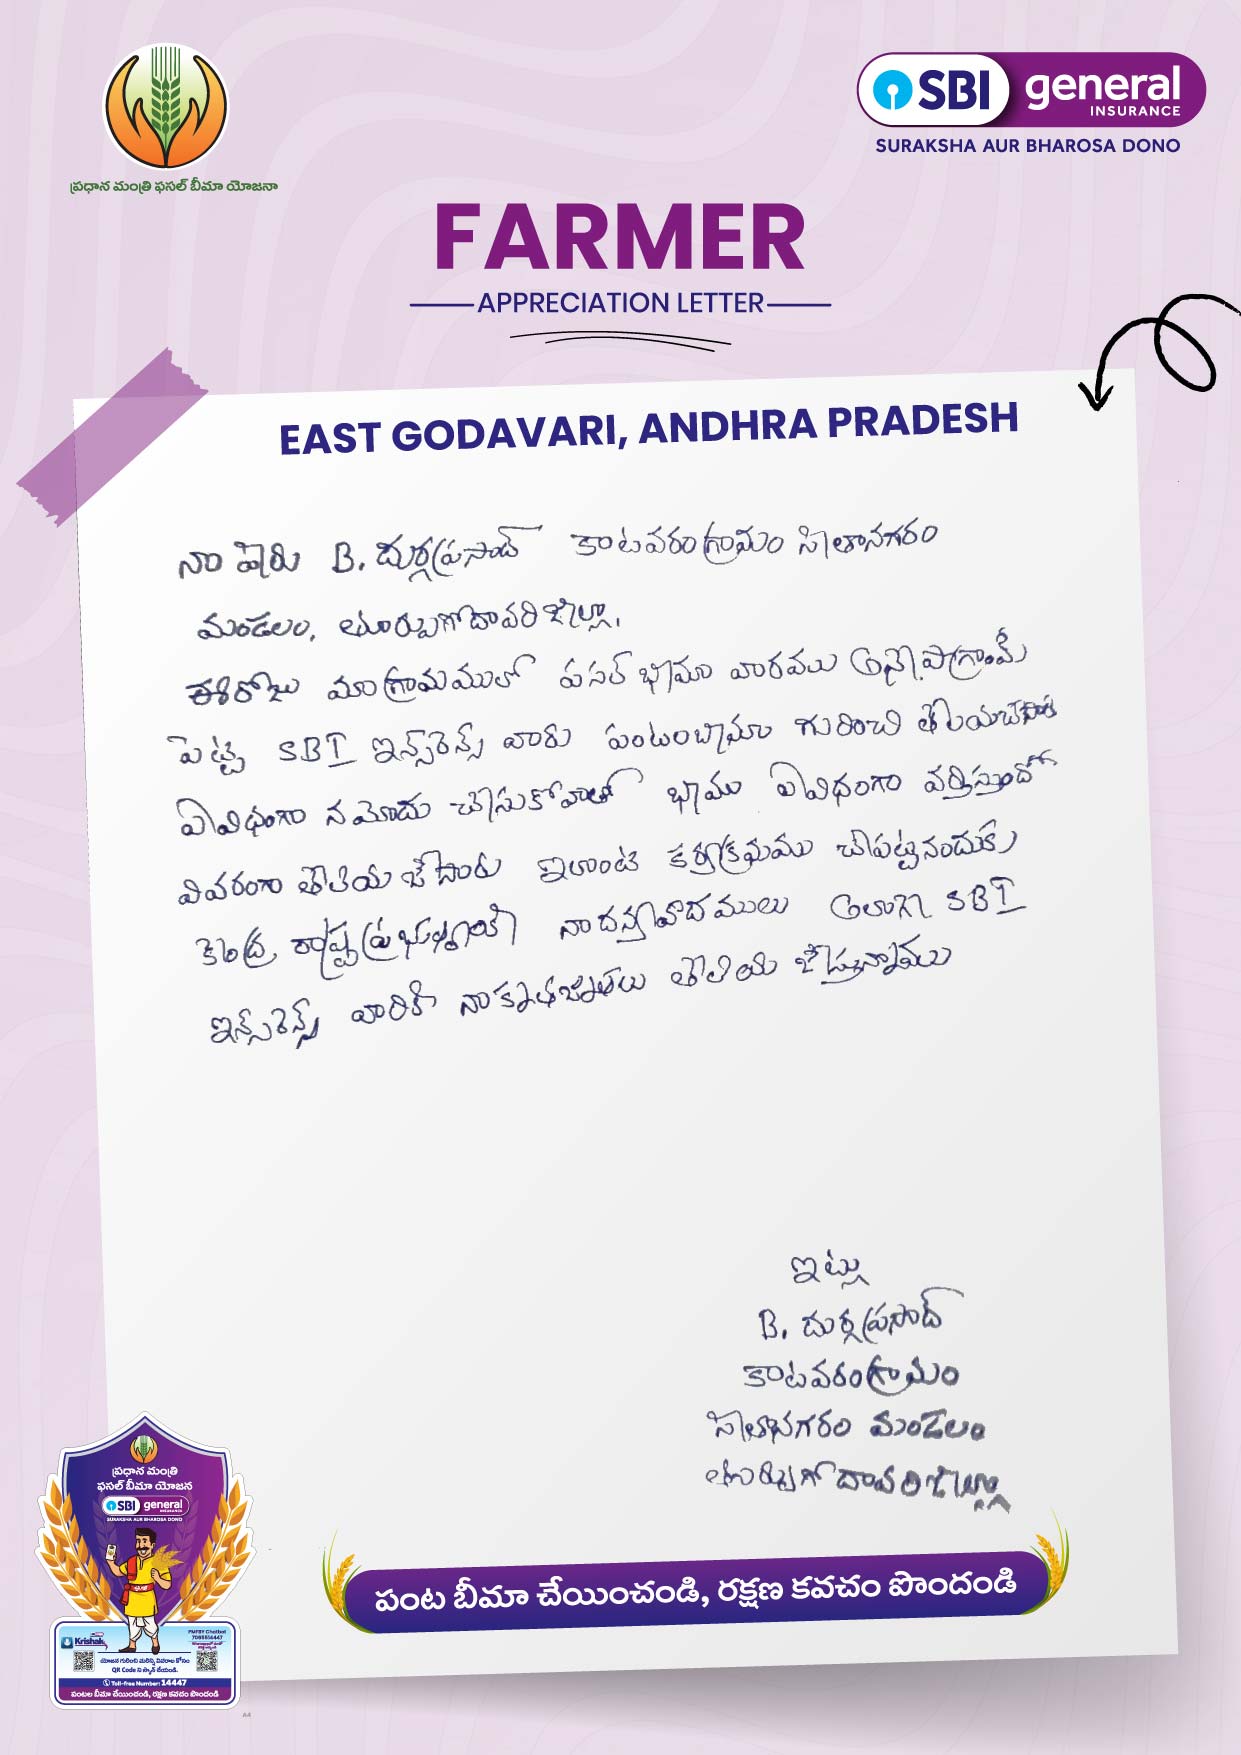 ప్రధాన మంత్రి ఫసల్ బీమా యోజనా
SBI general
INSURANCE
SURAKSHA AUR BHAROSA DONO
FARMER
APPRECIATION LETTER
EAST GODAVARI, ANDHRA PRADESH
నా పేరు B. దుర్గప్రసాద్ కాటవరం గ్రామం సీతానగరం
మండలం, తూర్పుగోదావరి జిల్లా.
ఈరోజు మా గ్రామములో ఫసల్ భీమా వారవము అనే ప్రోగ్రాంమ్
పెట్టి SBI ఇన్స్‌రెన్స్ వారు పంటంబీమా గురించి
ఏవిధంగా నమోదు చేసుకోవాలో భీమ ఏవిధంగా వర్తిస్తుందో
వివరంగా తెలియ జేసారు ఇలాంటి కార్యక్రమము చేపట్టినందుకు
కేంద్ర రాష్ట్ర ప్రభుత్వాలకి నా దన్యవాదములు అలాగే SBI
ఇన్స్‌రెన్స్ వారికి నా కృతజ్ఞతలు తెలియ జేస్తున్నాము
ఇట్లు
B. దుర్గప్రసాద్
కాటవరం గ్రామం
సీతానగరం మండలం
తూర్పుగోదావరి జిల్లా
ప్రధాన మంత్రి
ఫసల్ బీమా యోజన
SBI general
INSURANCE
SURAKSHA AUR BHAROSA DONO
PMFBY Chatbot
7065514447
Krishak
యోజన గురించి మరిన్ని వివరాల కోసం
QR Code ని స్కాన్ చేయండి.
Toll-free Number: 14447
పంటల బీమా చేయించండి, రక్షణ కవచం పొందండి
పంట బీమా చేయించండి, రక్షణ కవచం పొందండి
A4